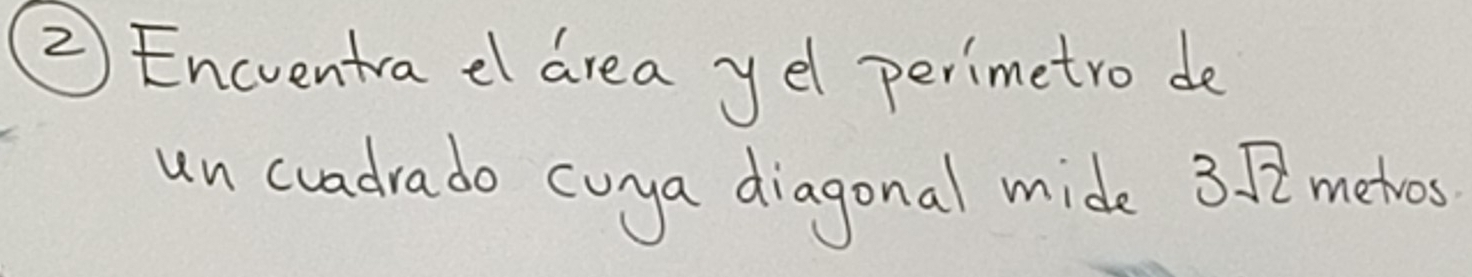 ② Encuentra el área y el perímetro de
un cuadrado cuya diagonal mide 3√2 metros.